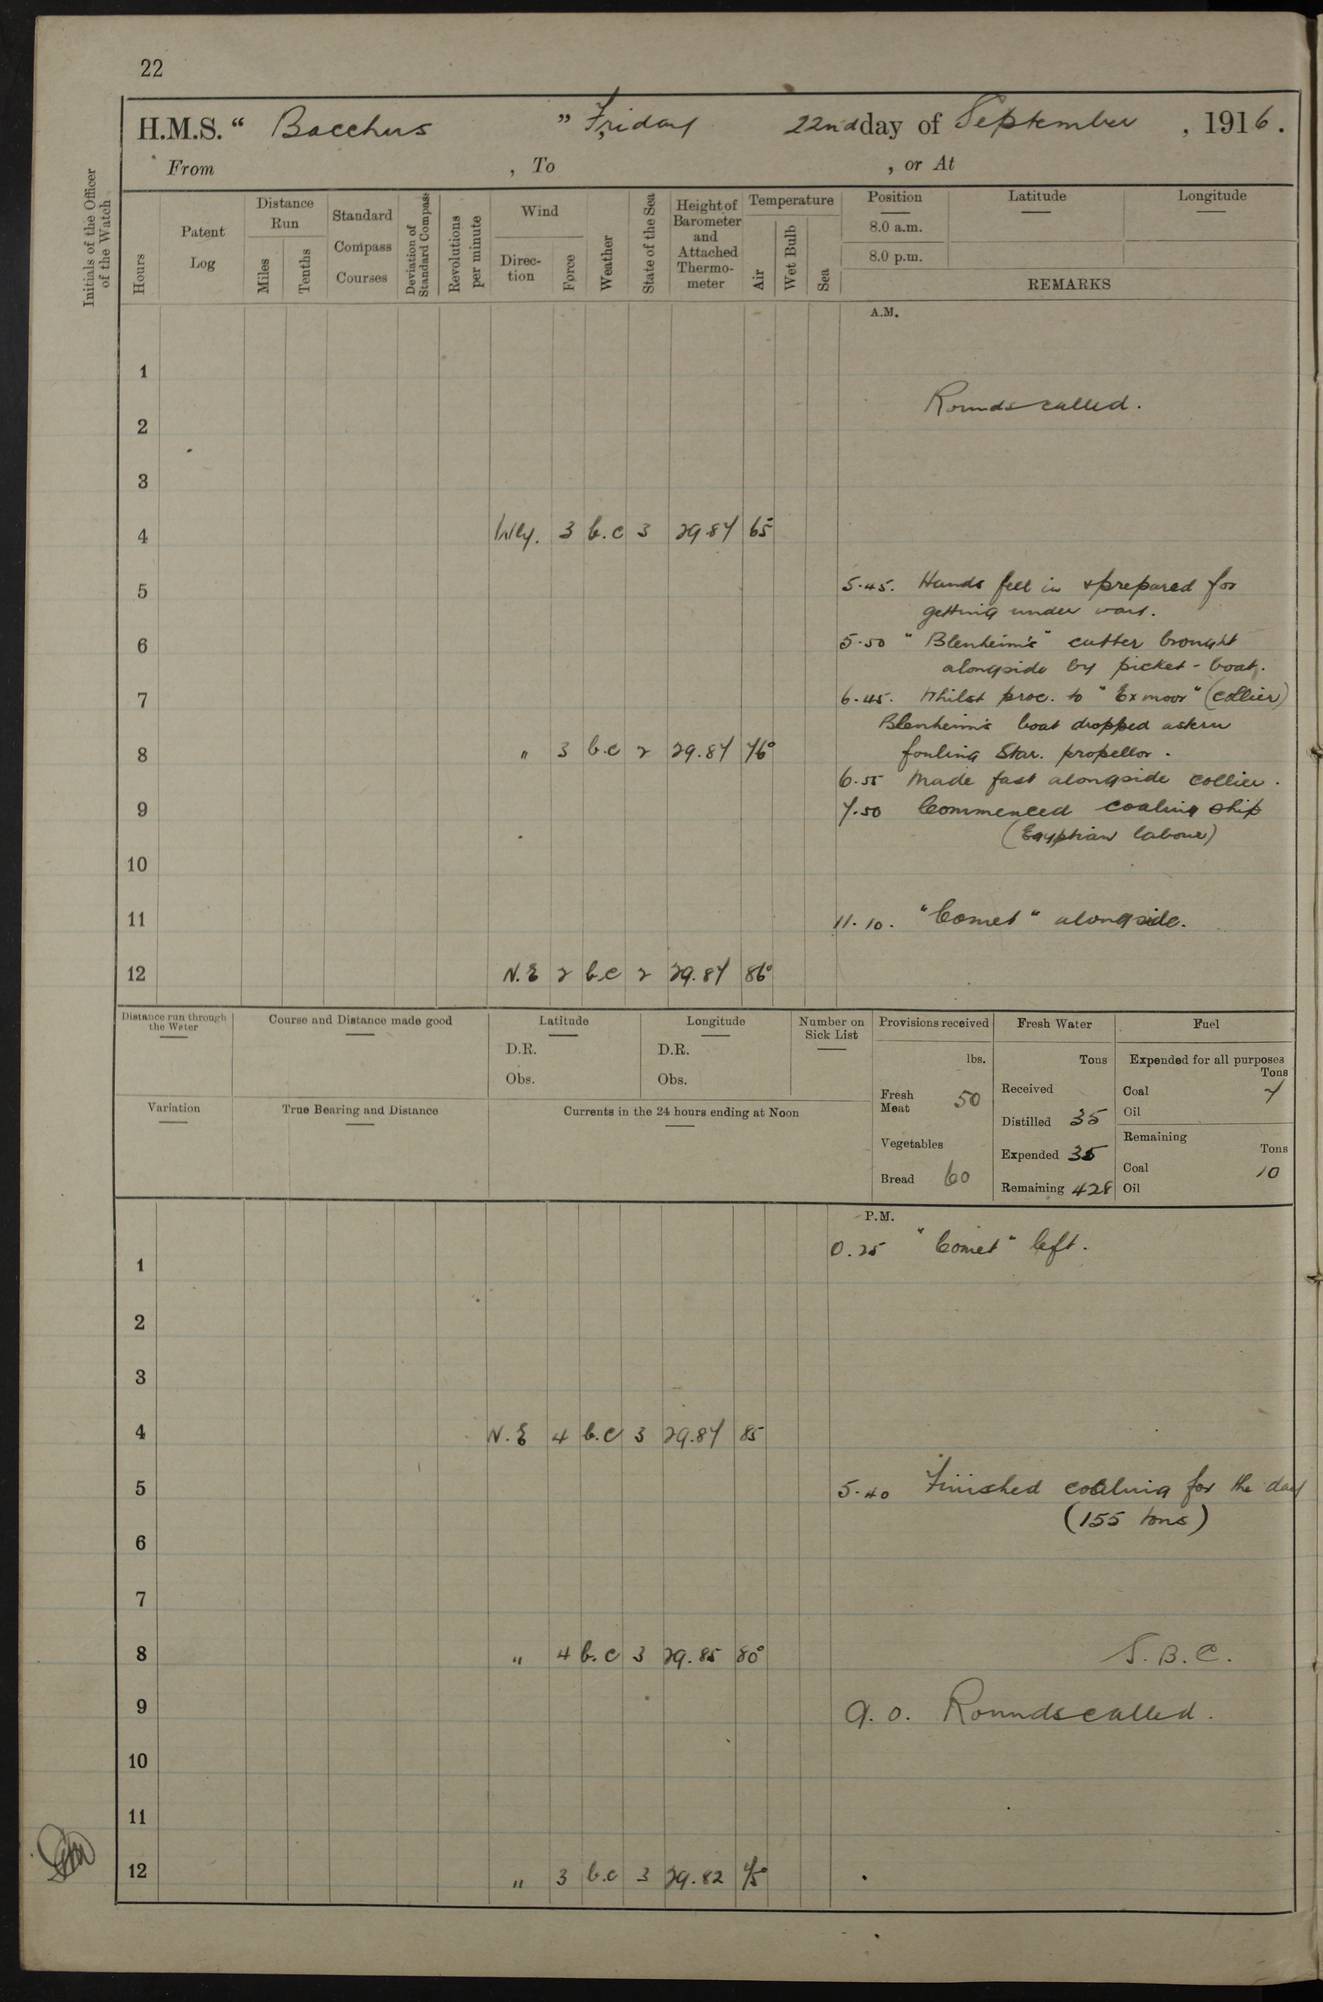 22
H.M.S. “ Bacchus ” Friday 22nd day of September , 1916.
From , To , or At
Initials of the Officer of the Watch
Hours
Patent Log
Distance Run
Miles
Tenths
Standard Compass Courses
Deviation of Standard Compass
Revolutions per minute
Wind
Direction
Force
Weather
State of the Sea
Height of Barometer and Attached Thermometer
Temperature
Air
Wet Bulb
Sea
Position
8.0 a.m.
8.0 p.m.
Latitude
Longitude
REMARKS
A.M.
1
Rounds called.
2
3
4 Wly. 3 b.c 3 29.87 65°
5 5.45. Hands fell in & prepared for
getting under way.
6 5.50 "Blenheim's" cutter brought
alongside by picket-boat.
7 6.45. Whilst proc. to "Exmoor" (collier)
Blenheim's boat dropped astern
8 " 3 b.c 2 29.87 76° fouling Star. propellor.
6.55 Made fast alongside collier.
9 7.50 Commenced coaling ship
(Egyptian labour)
10
11 11.10. "Comet" alongside.
12 N.E 2 b.c 2 29.87 86°
Distance run through the Water
Course and Distance made good
Latitude
D.R.
Obs.
Longitude
D.R.
Obs.
Number on Sick List
Variation
True Bearing and Distance
Currents in the 24 hours ending at Noon
Provisions received
lbs.
Fresh Meat 50
Vegetables
Bread 60
Fresh Water
Tons
Received
Distilled 35
Expended 35
Remaining 428
Fuel
Expended for all purposes
Tons
Coal 7
Oil
Remaining
Tons
Coal 10
Oil
P.M.
0.25 "Comet" left.
1
2
3
4 N.E 4 b.c 3 29.87 85
5 5.40 Finished coaling for the day
(155 tons)
6
7
8 " 4 b.c 3 29.85 80° S.B.C.
9 9.0. Rounds called.
10
11
12 " 3 b.c 3 29.82 75°